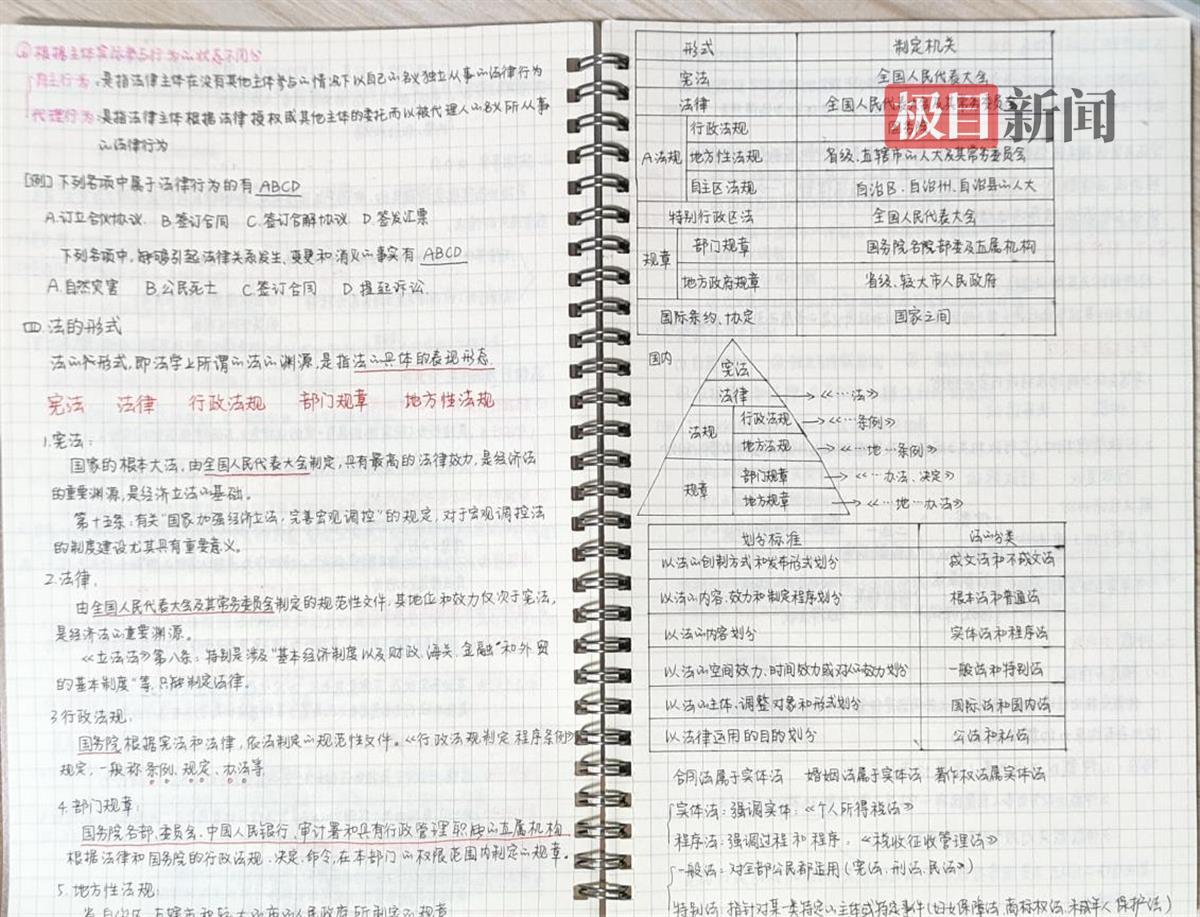 ②根据主体实际参与行为的状态不同分
自主行为:是指法律主体在没有其他主体参与的情况下以自己的名义独立从事的法律行为
代理行为:是指法律主体根据法律授权或其他主体的委托而以被代理人的名义所从事
的法律行为
[例]下列各项中属于法律行为的有 ABCD
A.订立合伙协议 B.签订合同 C.签订合解协议 D.签发汇票
下列各项中,能够引起法律关系发生、变更和消灭的事实有 ABCD
A.自然灾害 B.公民死亡 C.签订合同 D.提起诉讼
四.法的形式
法的形式,即法学上所谓的法的渊源,是指法的具体的表现形态.
宪法 法律 行政法规 部门规章 地方性法规
1.宪法:
国家的根本大法,由全国人民代表大会制定,具有最高的法律效力,是经济法
的重要渊源,是经济立法的基础。
第十五条:有关"国家加强经济立法,完善宏观调控"的规定,对于宏观调控法
的制度建设尤其具有重要意义。
2.法律:
由全国人民代表大会及其常务委员会制定的规范性文件,其地位和效力仅次于宪法,
是经济法的重要渊源。
《立法法》第八条:特别是涉及"基本经济制度以及财政、海关、金融"和外贸
的基本制度"等,只能制定法律。
3.行政法规:
国务院根据宪法和法律,依法制定的规范性文件。《行政法规制定程序条例》
规定,一般称条例、规定、办法等
4.部门规章:
国务院各部、委员会、中国人民银行、审计署和具有行政管理职能的直属机构
根据法律和国务院的行政法规、决定、命令,在本部门的权限范围内制定的规章。
5.地方性法规:
形式 制定机关
宪法 全国人民代表大会
法律 全国人民代表
极目新闻
A法规 行政法规
地方性法规 省级、直辖市的人大及其常务委员会
自主区法规 自治区、自治州、自治县的人大
特别行政区法 全国人民代表大会
规章 部门规章 国务院各部委及直属机构
地方政府规章 省级、较大市人民政府
国际条约、协定 国家之间
国内
宪法
法律 → 《…法》
法规 行政法规 → 《…条例》
地方法规 → 《…地…条例》
规章 部门规章 → 《…办法、决定》
地方规章 → 《…地…办法》
划分标准 法的分类
以法的创制方式和发布形式划分 成文法和不成文法
以法的内容、效力和制定程序划分 根本法和普通法
以法的内容划分 实体法和程序法
以法的空间效力、时间效力或对人的效力划分 一般法和特别法
以法的主体、调整对象和形式划分 国际法和国内法
以法律运用的目的划分 公法和私法
合同法属于实体法 婚姻法属于实体法 著作权法属实体法
实体法:强调实体:《个人所得税法》
程序法:强调过程和程序,《税收征收管理法》
一般法:对全部公民都适用(宪法、刑法、民法)
特别法:指针对某一类特定的主体或特定事件(妇女保障法、商标权法、未成年人保护法)